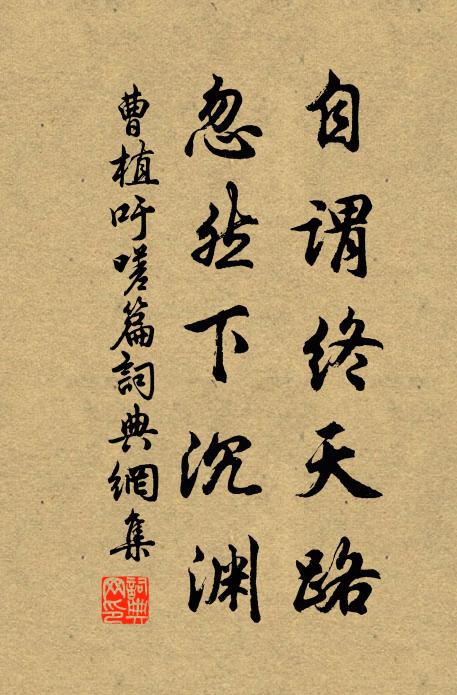 自谓终天路
忽然下沉渊
曹植吁嗟篇詞典網集
詞典網印